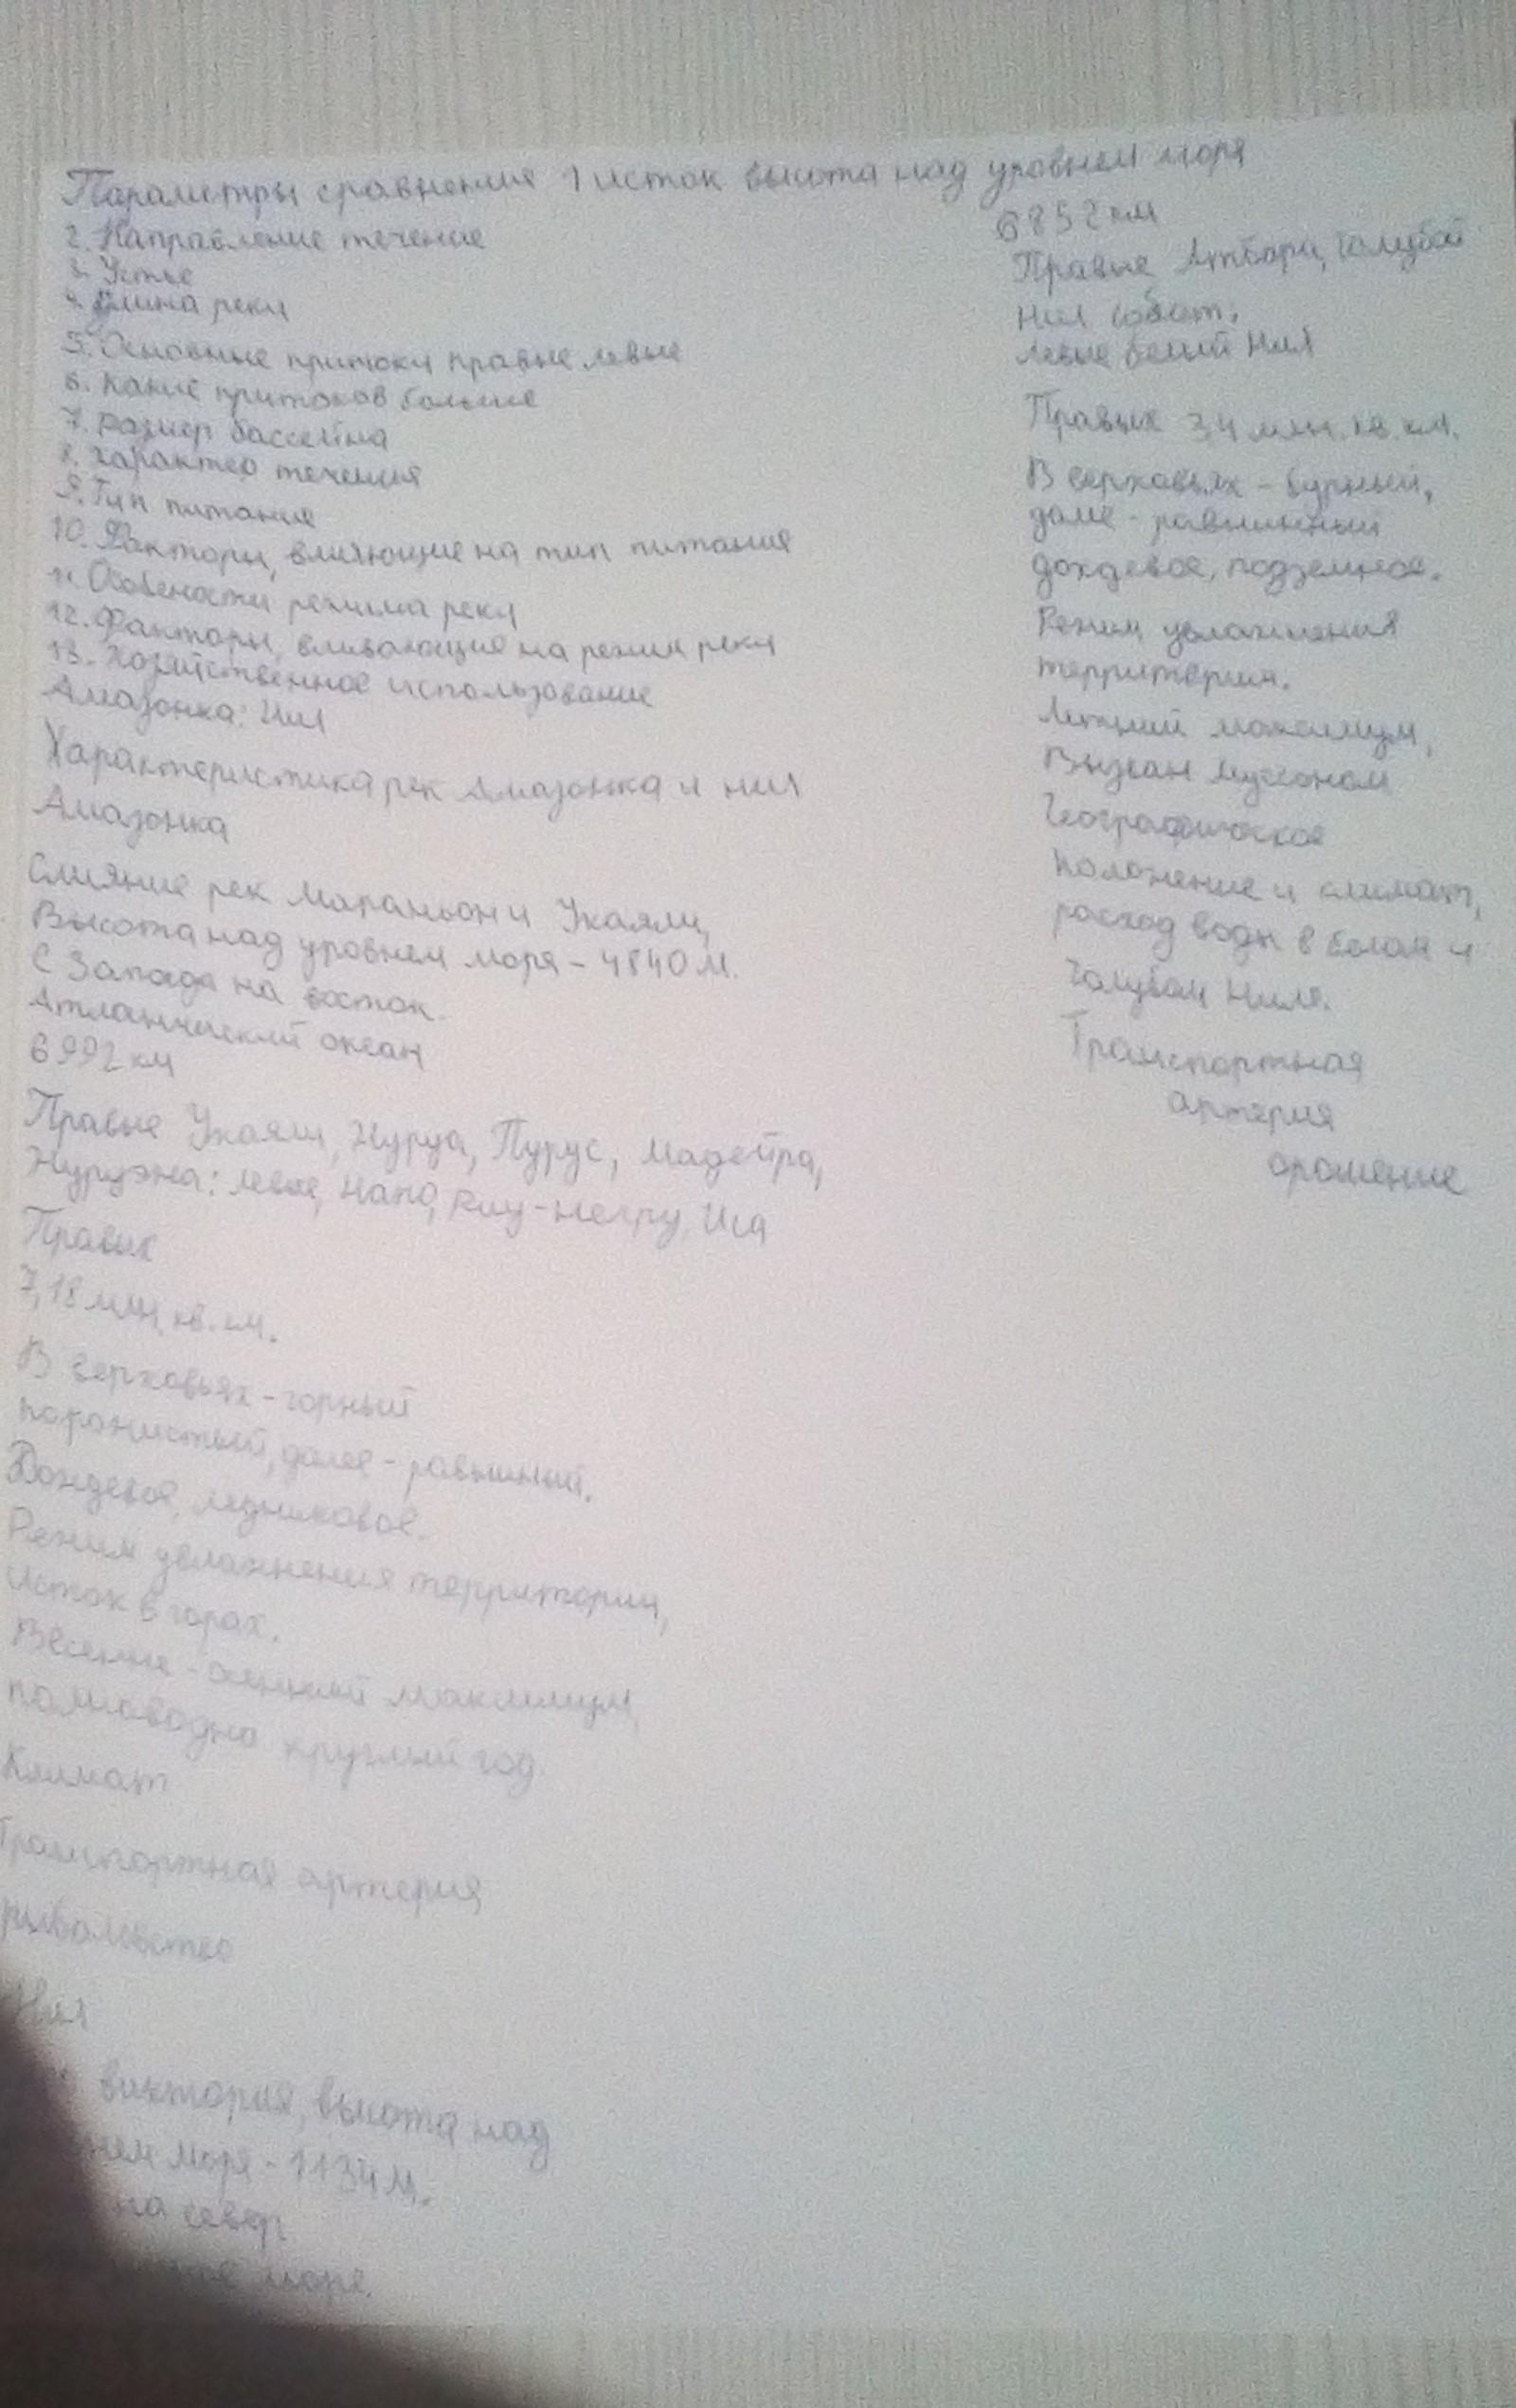 Параметры сравнения 1 исток высота над уровнем моря
2. Направление течение
3. Устье
4. Длина реки
5. Основные притоки правые левые
6. Какие притоков больше
7. размер бассейна
8. характер течения
9. Тип питание
10. Факторы, влияющие на тип питания
11. Особености режима реки
12. Факторы, вливающие на режим реки
13. Хозяйственное использование
Амазонка: Нил
Характеристика рек Амазонка и нил
Амазонка
Слияние рек Мараньон и Укаяли,
Высота над уровнем моря - 4840 м.
С Запада на восток.
Атлантический океан
6992 км
Правые Укаяли, Журуа, Пурус, Мадейра,
Журуэна: левые, Напо, Риу-Негру, Иса
Правых
7,18 млн. кв. км.
В верховьях - горный
порожистый, далее - равнинный.
Дождевое, ледниковое.
Режим увлажнения территории,
Исток в горах.
Весенне - осенний максимум,
полноводна круглый год.
Климат
Транспортная артерия
рыболовство
Нил
Виктория, высота над
моря - 1134 м.
на север
море.
6852 км
Правые Атбара, Голубой
Нил Собат.
Левые белый Нил
Правых 3,4 млн. кв. км.
В верховьях - бурный,
далее - равнинный
дождевое, подземное.
Режим увлажнения
территория.
Летний максимум,
Вызван муссоном
Географическое
положение и климат,
расход воды в Белом и
Голубом Ниле.
Транспортная
артерия
орошение